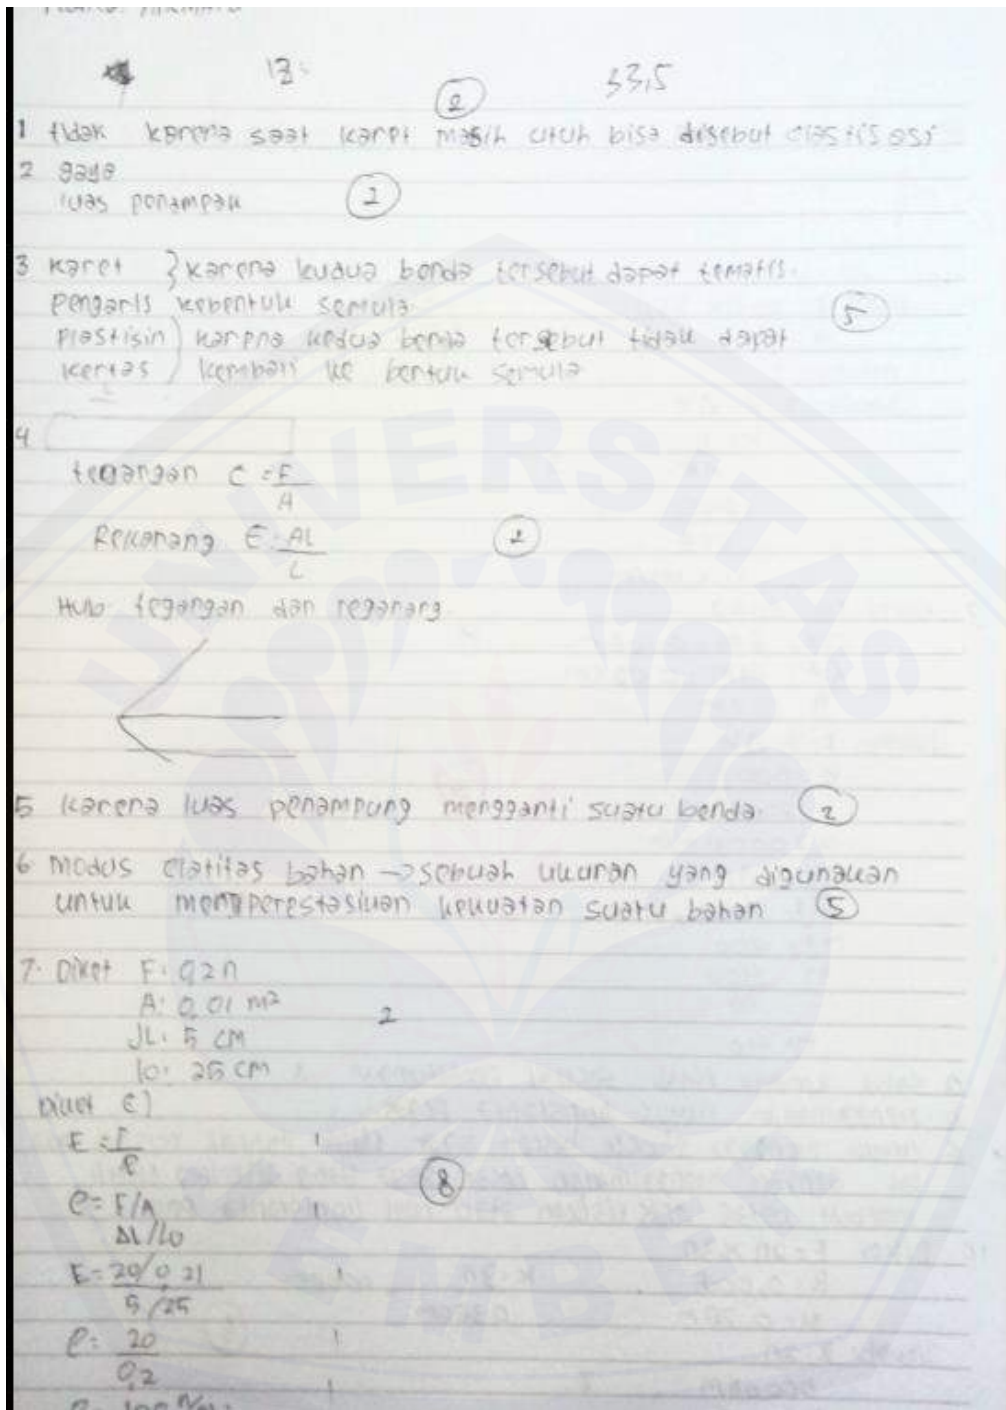 13.
33,5
2
1 tidak karena saat karet masih utuh bisa disebut elastisasi
2 gaya
luas penampan
2
3 karet } karena kudua benda tersebut dapat
pengaris kebentuk semula.
5
Plastisin ) karena kedua benda tersebut tidak dapat
kertas ) kembali ke bentuk semula
4
tegangan C = F
A
E = ΔL
L
2
Hub tegangan dan reganang
5 karena luas penampung mengganti suatu benda. 2
6 modus elatitas bahan → sebuah ukuran yang digunakan
untuk kekuatan suatu bahan 5
7. Diket F: 0,2 n
A: 0,01 m²
2
JL: 5 cm
lo: 25 cm
E = F
e
1
e = F/A
ΔL/Lo
1
8
E = 20/0,21
5/25
1
e = 20
0,2
1
1
UNIVERSITAS JEMBER